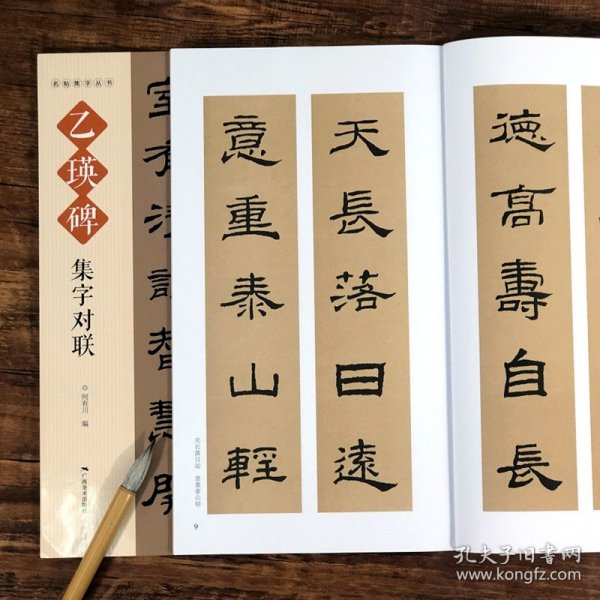 名帖集字丛书
乙瑛碑
集字对联
◎何有川 编
广西美术出版社
室有清
智慧開
天長落日遠
意重泰山輕
天长落日远 意重泰山轻
9
德高壽自長
孔夫子旧书网
www.kongfz.com